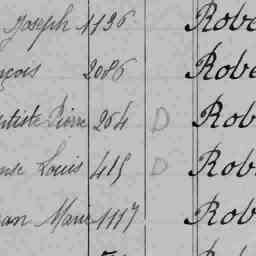 Joseph 1136 Robe
nçois 2086 Robe
ptiste Pierre 204 D Rob
nse Louis 415 D Rob
ean Marie 1117 Rob